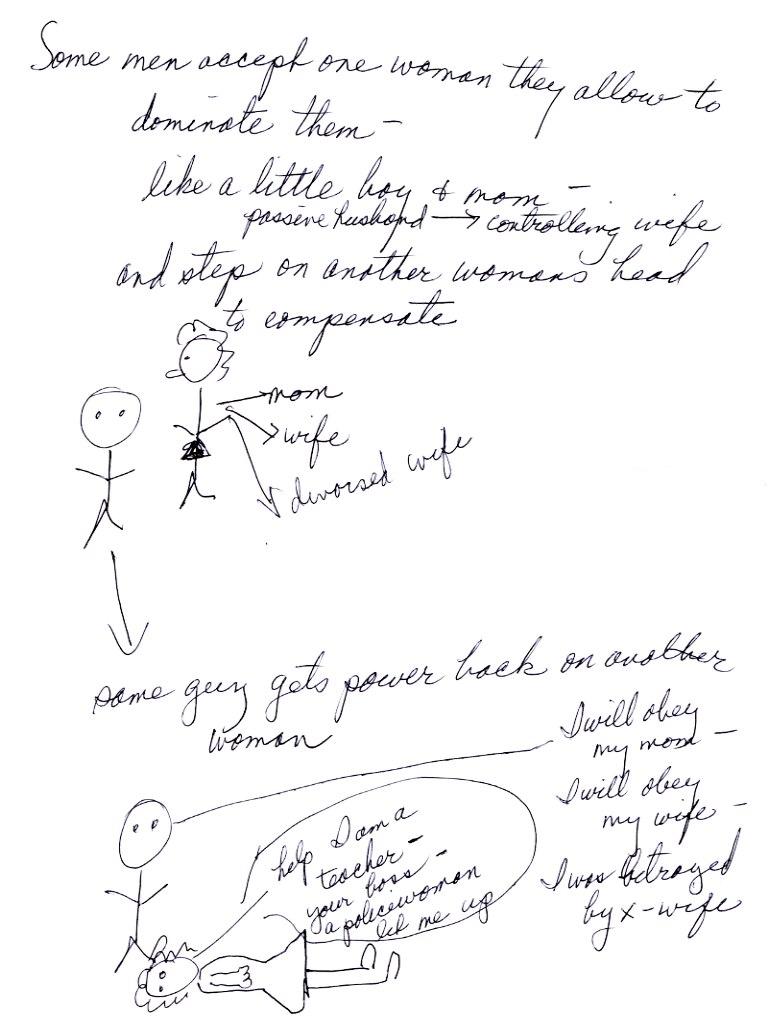 Some men accept one woman they allow to
dominate them -
like a little boy & mom -
passive husband → controlling wife
and step on another womans head
to compensate
mom
wife
divorsed wife
same guy gets power back on another
woman
I will obey
my mom -
I will obey
my wife -
I was betrayed
by x-wife
help I am a
teacher -
your boss -
a policewoman
let me up